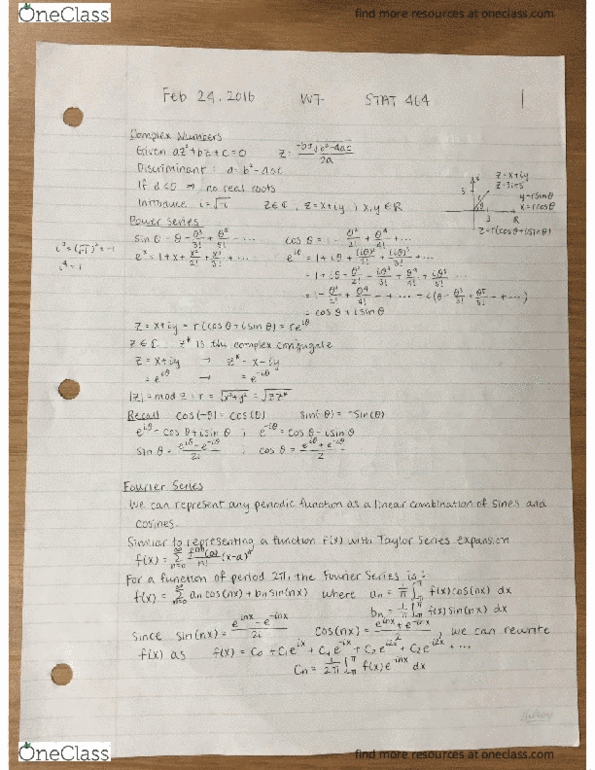 OneClass
find more resources at oneclass.com
Feb 24, 2016 WT- STAT 464 1
Complex Numbers
Given az²+bz+c=0 z= (-b±√(b²-4ac))/2a
Discriminant: d= b²-4ac
If d<0 ⇒ no real roots
Introduce i=√-1 z∈ℂ, z=x+iy, x,y∈ℝ
z=x+iy
z=3i+5
y=rsinθ
x=rcosθ
z=r(cosθ+isinθ)
5
3 R
Power Series
sinθ=θ-θ³/3!+θ⁵/5!-... cosθ=1-θ²/2!+θ⁴/4!+...
i²=(√-1)²=-1
i⁴=1
eˣ=1+x+x²/2!+x³/3!+... e^{iθ}=1+iθ+(iθ)²/2!+(iθ)³/3!+...
=1+iθ-θ²/2!-iθ³/3!+θ⁴/4!+iθ⁵/5!...
=1-θ²/2!+θ⁴/4!-+...+i(θ-θ³/3!+θ⁵/5!-+...)
=cosθ+isinθ
z=x+iy=r(cosθ+isinθ)=re^{iθ}
z∈ℂ z* is the complex conjugate
z=x+iy → z*=x-iy
=e^{iθ} → =e^{-iθ}
|z|=mod z=r=√(x²+y²)=√(zz*)
Recall cos(-θ)=cos(θ) sin(-θ)=-sin(θ)
e^{iθ}=cosθ+isinθ ; e^{-iθ}=cosθ-isinθ
sinθ=(e^{iθ}-e^{-iθ})/2i ; cosθ=(e^{iθ}+e^{-iθ})/2
Fourier Series
We can represent any periodic function as a linear combination of sines and
cosines.
Similar to representing a function f(x) with Taylor Series expansion
f(x)=∑_{n=0}^{∞} f⁽ⁿ⁾(a)/n! (x-a)ⁿ
For a function of period 2π, the Fourier Series is:
f(x)=∑_{n=0}^{∞} an cos(nx)+bn sin(nx) where an=1/π ∫_{-π}^{π} f(x)cos(nx) dx
bn=1/π ∫_{-π}^{π} f(x)sin(nx) dx
Since sin(nx)=(e^{inx}-e^{-inx})/2i cos(nx)=(e^{inx}+e^{-inx})/2, we can rewrite
f(x) as f(x)=C₀+C₁e^{ix}+C₋₁e^{-ix}+C₂e^{i2x}+C₋₂e^{-i2x}+...
Cn=1/2π ∫_{-π}^{π} f(x)e^{-inx} dx
OneClass
find more resources at oneclass.com